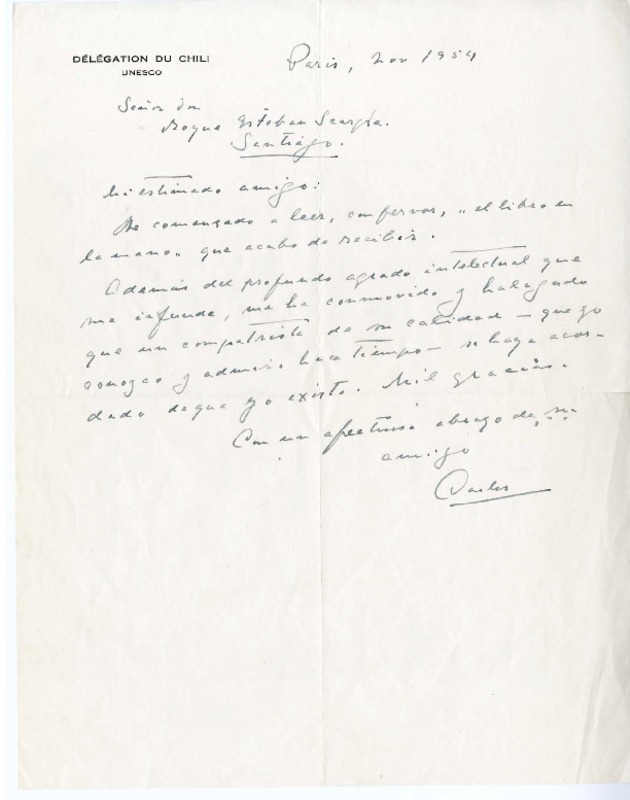 DÉLÉGATION DU CHILI
UNESCO
Paris, Nov 1954
Señor don
Roque Esteban Scarpa.
Santiago.
Mi estimado amigo:
He comenzado a leer, con fervor, "el libro en
la mano" que acabo de recibir.
Además del profundo agrado intelectual que
me infunde, me ha conmovido y halagado
que un compatriota de su calidad – que yo
conozco y admiro hace tiempo – se haya acor-
dado de que yo existo. Mil gracias.
Con un afectuoso abrazo de su
amigo
Carlos